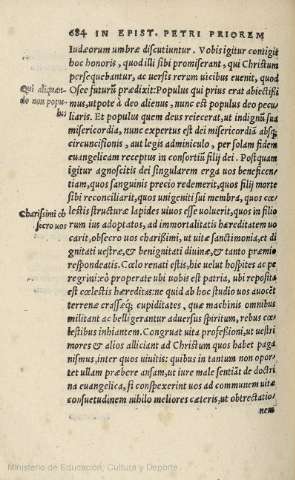 684 IN EPIST. PETRI PRIOREM
Iudæorum umbræ discutiuntur. Vobis igitur contigit
hoc honoris, quod illi sibi promiserant, qui Christum
persequebantur, ac uersis rerum uicibus euenit, quod
Qui aliquan-
do non popu-
lus
Osee futurũ prædixit: Populus qui prius erat abiectissi
mus, utpote à deo alienus, nunc est populus deo pecu
liaris. Et populus quem deus reiecerat, ut indignũ sua
misericordia, nunc expertus est dei misericordiã absq;
circuncisionis, aut legis adminiculo, per solam fidem
euangelicam receptus in consortiũ filij dei. Postquam
igitur agnoscitis dei singularem erga uos beneficen
tiam, quos sanguinis precio redemerit, quos filij morte
sibi reconciliarit, quos unigeniti sui membra, quos cœ
Charissimi ob
secro uos
lestis structuræ lapides uiuos esse uoluerit, quos in filio
rum ius adoptatos, ad immortalitatis hæreditatem uo
carit, obsecro uos charissimi, ut uitæ sanctimonia, et di
gnitati uestræ, & benignitati diuinæ, & tanto præmio
respondeatis. Cœlo renati estis, hic uelut hospites ac pe
regrini: eò properate ubi uobis est patria, ubi reposita
est cœlestis hæreditas: ne quid ab hoc studio uos auocet
terrenæ crassæq; cupiditates, quæ machinis omnibus
militant ac belligerantur aduersus spiritum, rebus cœ
lestibus inhiantem. Congruat uita professioni, ut uestri
mores & alios alliciant ad Christum quos habet paga
nismus, inter quos uiuitis: quibus in tantum non opor
tet ullam præbere ansam, ut iure male sentiãt de doctri
na euangelica, si conspexerint uos ad communem uitæ
consuetudinem nihilo meliores cæteris, ut obtrectatio
nem
Ministerio de Educación, Cultura y Deporte